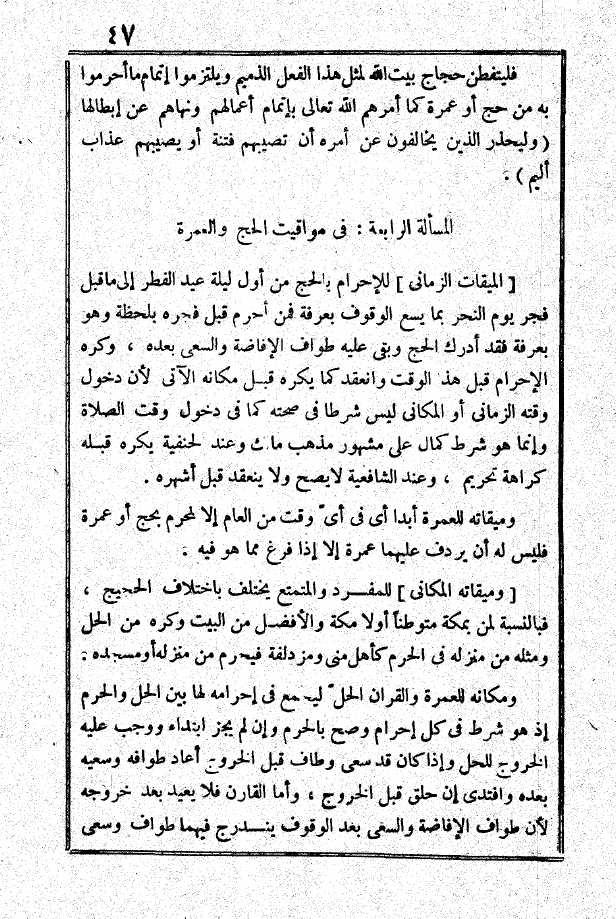 ٤٧
فليتفطن حجاج بيت الله لمثل هذا الفعل الذميم ويلتزموا إتمام ما أحرموا
به من حج أو عمرة كما أمرهم الله تعالى بإتمام أعمالهم ونهاهم عن إبطالها
( وليحذر الذين يخالفون عن أمره أن تصيبهم فتنة أو يصيبهم عذاب
أليم ) .
المسألة الرابعة : فى مواقيت الحج والعمرة
[ الميقات الزمانى ] للإحرام بالحج من أول ليلة عيد الفطر إلى ما قبل
فجر يوم النحر بما يسع الوقوف بعرفة فمن أحرم قبل فجره بلحظة وهو
بعرفة فقد أدرك الحج وبقى عليه طواف الإفاضة والسعى بعده ، وكره
الإحرام قبل هذ الوقت وانعقد كما يكره قبل مكانه الآتى لأن دخول
وقته الزمانى أو المكانى ليس شرطا فى صحته كما فى دخول وقت الصلاة
وإنما هو شرط كمال على مشهور مذهب مالك وعند لحنفية يكره قبله
كراهة تحريم ، وعند الشافعية لا يصح ولا ينعقد قبل أشهره .
وميقاته للعمرة أبدا أى فى أىّ وقت من العام إلا لمحرم بحج أو عمرة
فليس له أن يردف عليهما عمرة إلا إذا فرغ مما هو فيه .
[ وميقاته المكانى ] للمفرد والمتمتع يختلف باختلاف الحجيج ،
فبالنسبة لمن بمكة متوطناً أولا مكة والأفضل من البيت وكره من الحل
ومثله من منزله فى الحرم كأهل منى ومزدلفة فيحرم من منزله أو مسجده .
ومكانه للعمرة والقران الحلّ ليجمع فى إحرامه لها بين الحل والحرم
إذ هو شرط فى كل إحرام وصح بالحرم وإن لم يجز ابتداء ووجب عليه
الخروج للحل وإذا كان قد سعى وطاف قبل الخروج أعاد طوافه وسعيه
بعده وافتدى إن حلق قبل الخروج ، وأما القارن فلا يعيد بعد خروجه
لأن طواف الإفاضة والسعى بعد الوقوف يندرج فيهما طواف وسعى